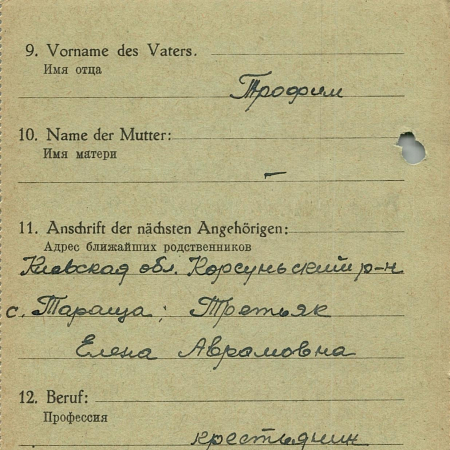 9. Vorname des Vaters.
Имя отца
Трофим
10. Name der Mutter:
Имя матери
—
11. Anschrift der nächsten Angehörigen:
Адрес ближайших родственников
Киевская обл. Корсуньский р-н
с. Тараща; Третьяк
Елена Аврамовна
12. Beruf:
Профессия
крестьянин